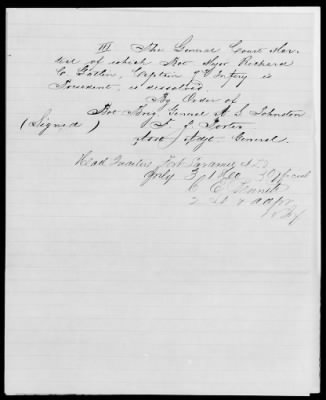 III The General Court Mar-
tial of which Bvt Major Richard
C. Gatlin, Captain 7" Infty is
President, is dissolved.
By Order of
Bvt Brig General A. S. Johnston
(Signed) F. J. Porter
Asst Adjt General.
Head Quarters Fort Laramie N.T.
July 3 1860 Official
C. E. Bennett
2 Lt &